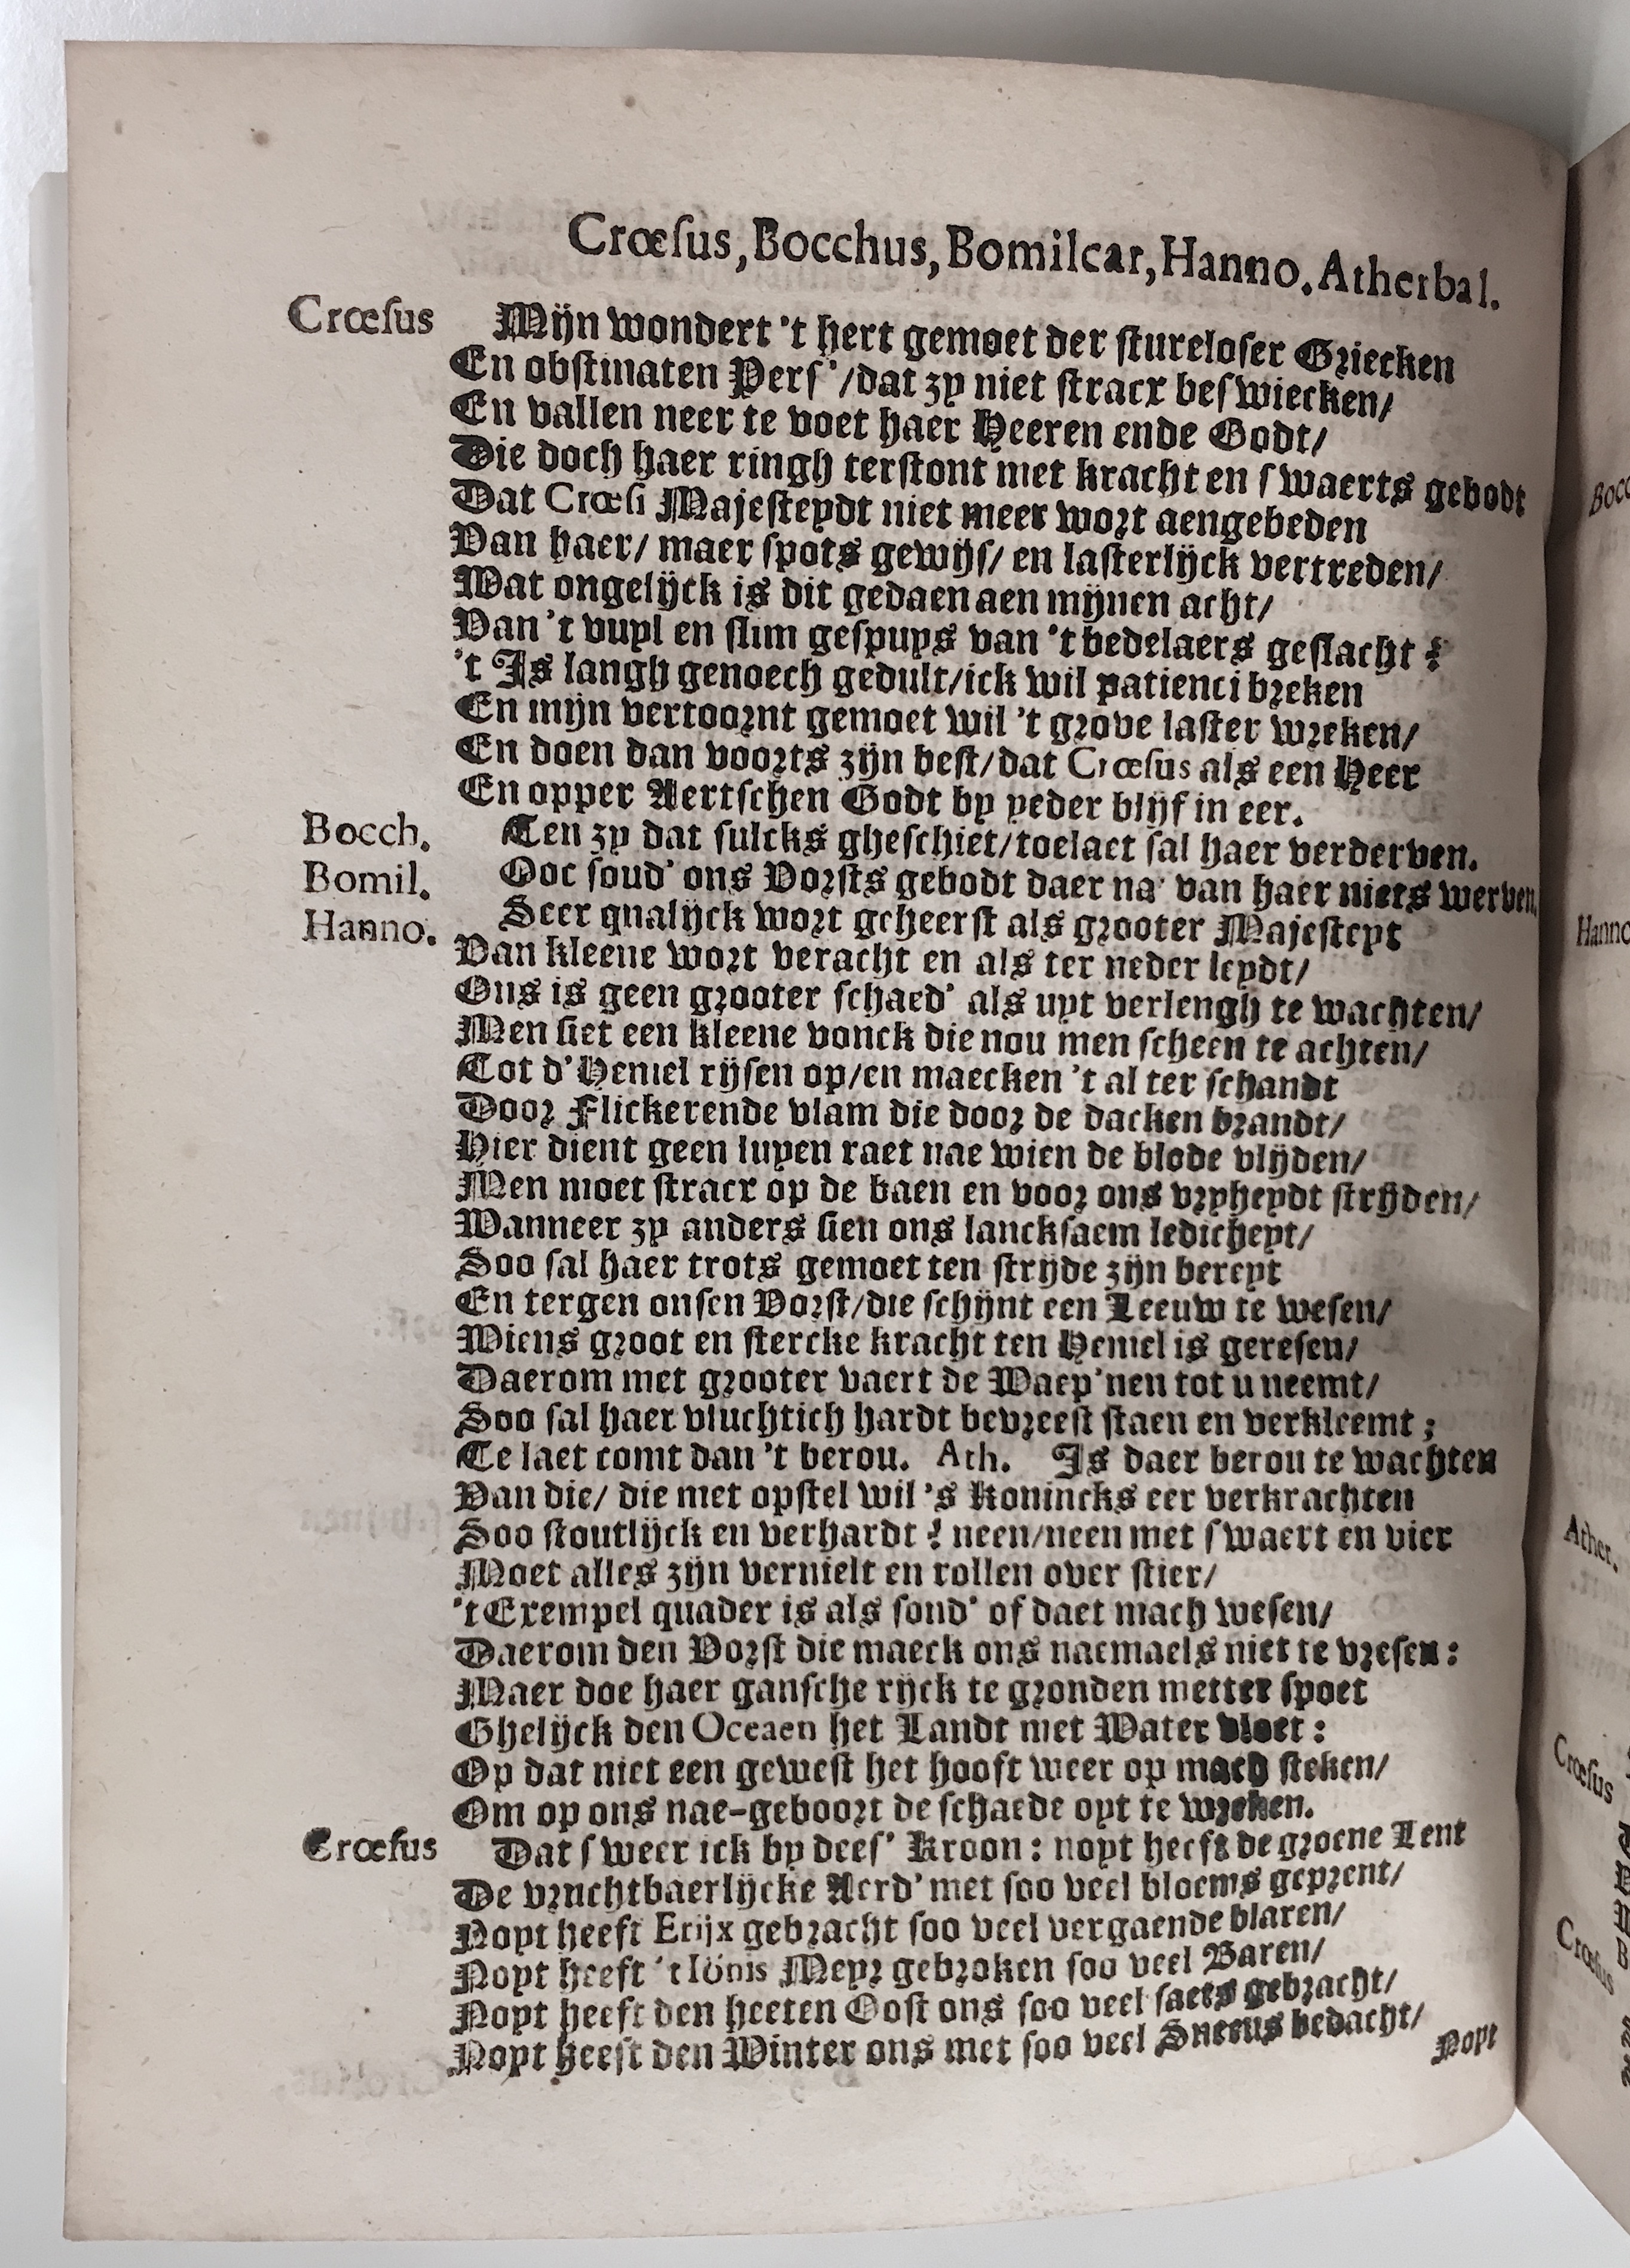 Crœſus, Bocchus, Bomilcar, Hanno. Atherbal.
Crœſus Mijn wondert 't hert gemoet der ſtureloſer Griecken
En obſtinaten Perſ'/dat zy niet ſtracx beſwiecken/
En vallen neer te voet haer Heeren ende Godt/
Die doch haer ringh terſtont met kracht en ſwaerts gebodt
Dat Crœſi Majeſteydt niet meer wort aengebeden
Van haer/ maer ſpots gewijſ/ en laſterlijck vertreden/
Wat ongelijck is dit gedaen aen mijnen acht/
Van 't vuyl en ſlim geſpuys van 't bedelaers geſlacht?
't Is langh genoech gedult/ick wil patienci breken
En mijn vertoornt gemoet wil 't grove laſter wreken/
En doen dan voorts zijn beſt/dat Crœſus als een Heer
En opper Aertſchen Godt by yeder blijf in eer.
Bocch. Ten zy dat ſulcks gheſchiet/toelaet ſal haer verderven.
Bomil. Ooc ſoud' ons Vorſts gebodt daer na' van haer niets werven.
Hanno. Seer qualijck wort geheerſt als grooter Majeſteyt
Van kleene wort veracht en als ter neder leydt/
Ons is geen grooter ſchaed' als uyt verlengh te wachten/
Men ſiet een kleene vonck die nou men ſcheen te achten/
Tot d'Hemel rijſen op/en maecken 't al ter ſchandt
Door Flickerende vlam die door de dacken brandt/
Hier dient geen luyen raet nae wien de blode vlijden/
Men moet ſtracx op de baen en voor ons vryheydt ſtrijden/
Wanneer zy anders ſien ons lanckſaem ledicheyt/
Soo ſal haer trots gemoet ten ſtrijde zijn bereyt
En tergen onſen Vorſt/die ſchijnt een Leeuw te weſen/
Wiens groot en ſtercke kracht ten Hemel is gereſen/
Daerom met grooter vaert de Waep'nen tot u neemt/
Soo ſal haer vluchtich hardt bevreeſt ſtaen en verkleemt;
Te laet comt dan 't berou. Ath. Is daer berou te wachten
Van die/ die met opſtel wil 's Konincks eer verkrachten
Soo ſtoutlijck en verhardt? neen/neen met ſwaert en vier
Moet alles zijn vernielt en rollen over ſtier/
't Exempel quader is als ſond' of daet mach weſen/
Daerom den Vorſt die maeck ons naemaels niet te vreſen:
Maer doe haer ganſche rijck te gronden metter ſpoet
Ghelijck den Oceaen het Landt met Water vloet:
Op dat niet een geweſt het hooft weer op mach ſteken/
Om op ons nae-geboort de ſchaede oyt te wreken.
Crœſus Dat ſweer ick by deeſ' Kroon: noyt heeft de groene Lent
De vruchtbaerlijcke Aerd' met ſoo veel bloems geprent/
Noyt heeft Erijx gebracht ſoo veel vergaende blaren/
Noyt heeft 't Iönis Meyr gebroken ſoo veel Baren/
Noyt heeft den heeten Ooſt ons ſoo veel ſaets gebracht/
Noyt heeft den Winter ons met ſoo veel Sneeus bedacht/
Noyt
Bocc
Hanno
Ather.
Crœſus
Crœſus